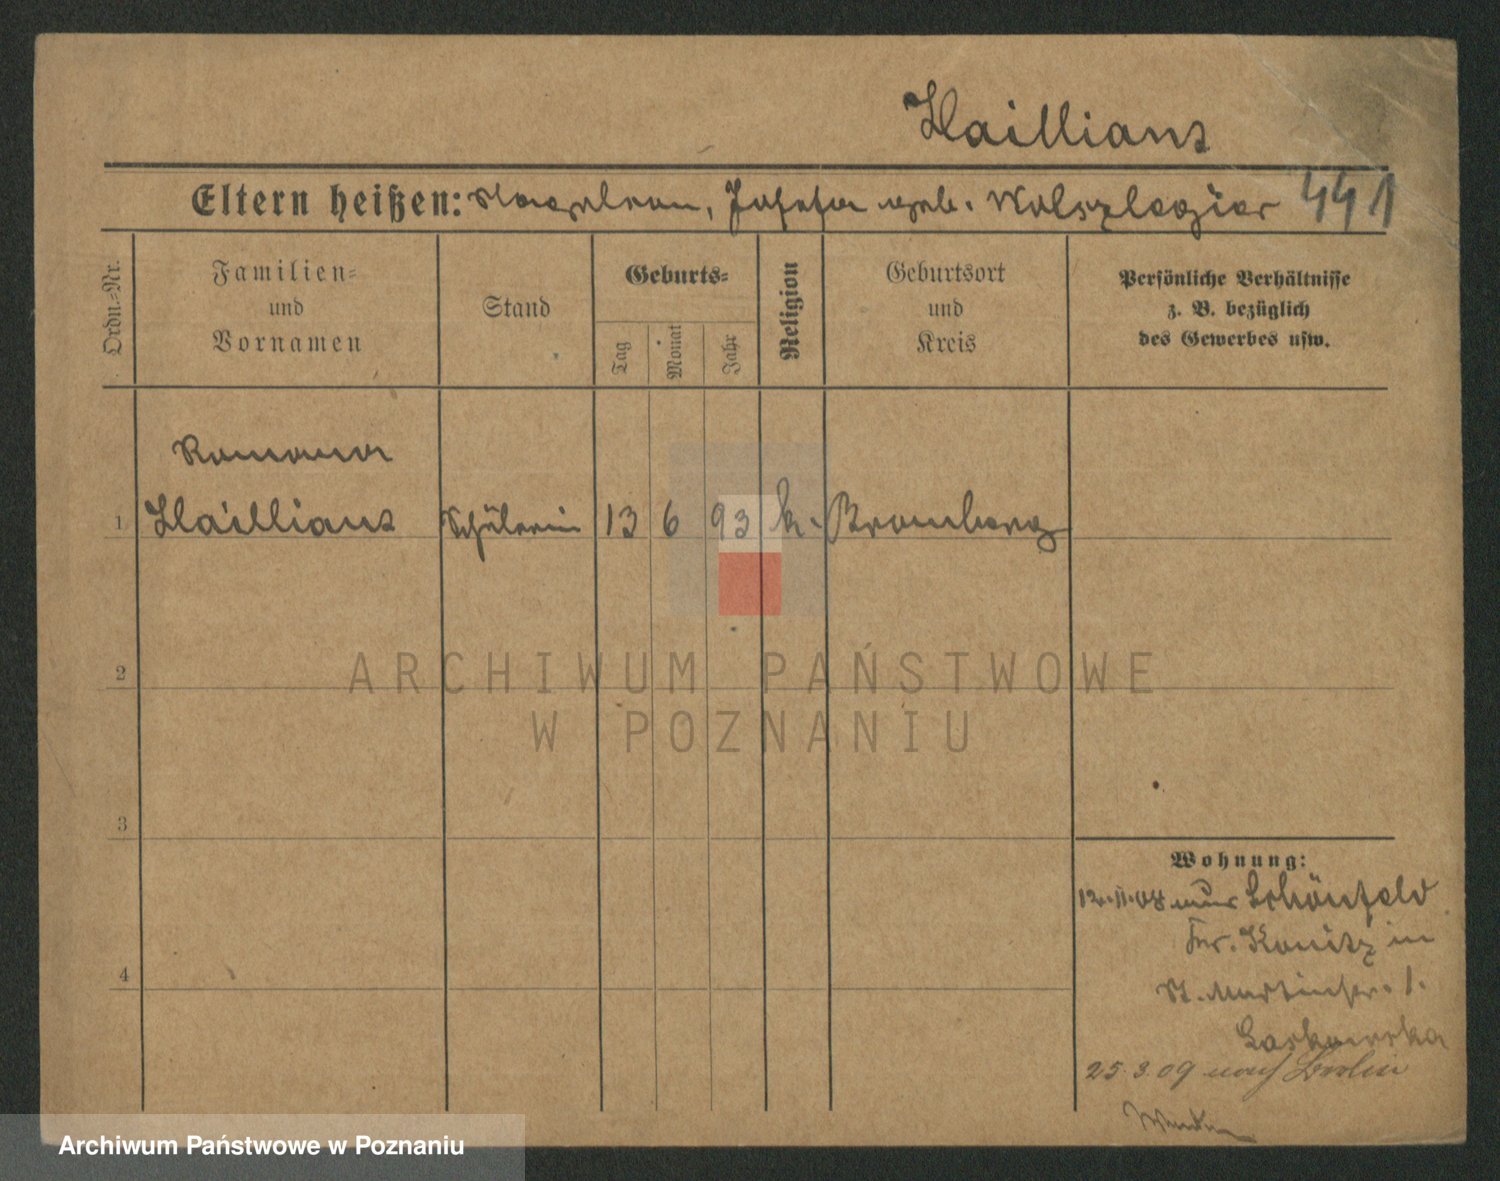 Haillianz
Eltern heißen: Napoleon, Josefa geb. Wolszlegier 441
Ordn.-Nr.
Familien-
und
Vornamen
Stand
Geburts-
Tag
Monat
Jahr
Religion
Geburtsort
und
Kreis
Persönliche Verhältnisse
z. B. bezüglich
des Gewerbes usw.
Romana
1 Haillianz Schülerin 13 6 93 k. Bromberg
2
3
4
Wohnung:
12.11.08 aus Schönfeld
Kr. Konitz in
St. Martinstr. 1.
Laskowska
25.3.09 nach Berlin
ARCHIWUM PAŃSTWOWE
W POZNANIU
Archiwum Państwowe w Poznaniu